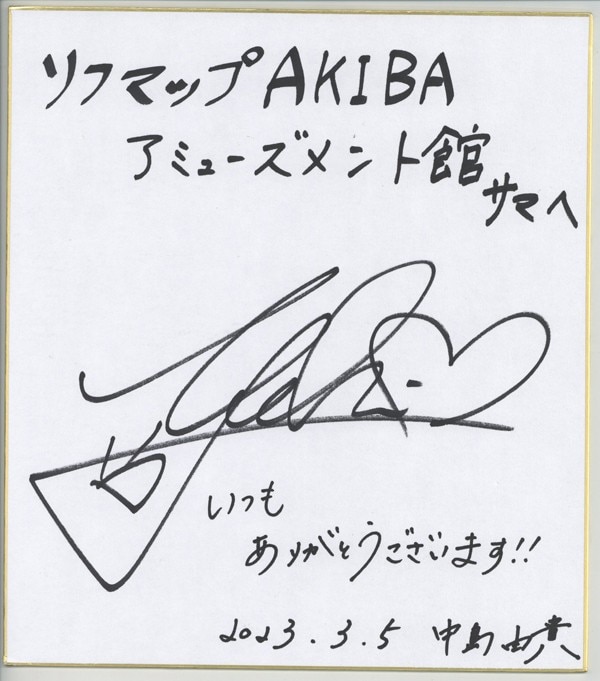 ソフマップAKIBA
アミューズメント館
サマへ
いつも
ありがとうございます!!
2023.3.5 中島由貴